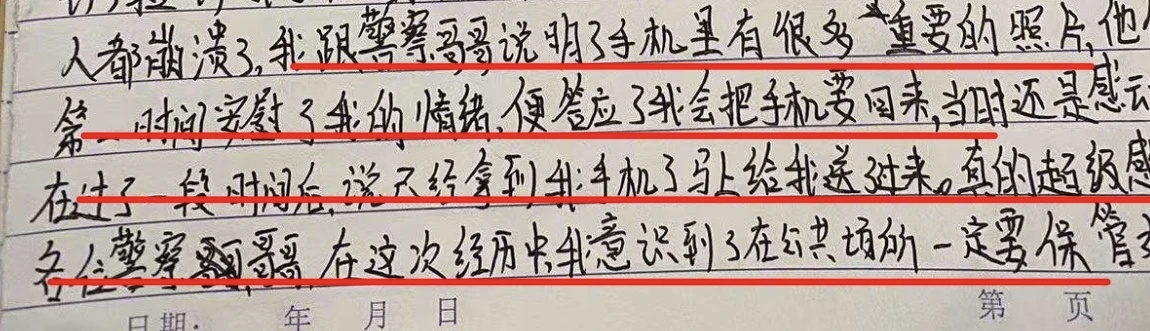 人都崩溃了,我跟警察哥哥说明了手机里有很多重要的照片,他
第一时间安慰了我的情绪,便答应了我会把手机要回来,当时还是感动
在过了一段时间后,说已经拿到我手机了马上给我送过来。真的超级感
各位警察哥哥,在这次经历中我意识到了在公共场所一定要保管
日期: 年 月 日 第 页